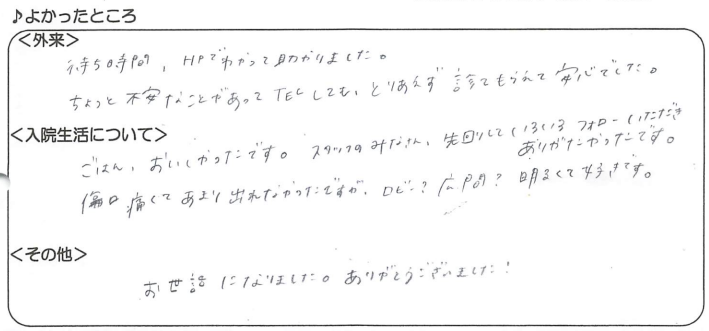 ♪よかったところ
<外来>
待ち時間、HPでわかって助かりました。
ちょっと不安なことがあってTELしても、とりあえず診てもらえて安心でした。
<入院生活について>
ごはん、おいしかったです。スタッフのみなさん、先回りしていろいろフォローいただき
ありがたかったです。
傷口痛くてあまり出れなかったですが、ロビー?広間?明るくて好きです。
<その他>
お世話になりました。ありがとうございました!